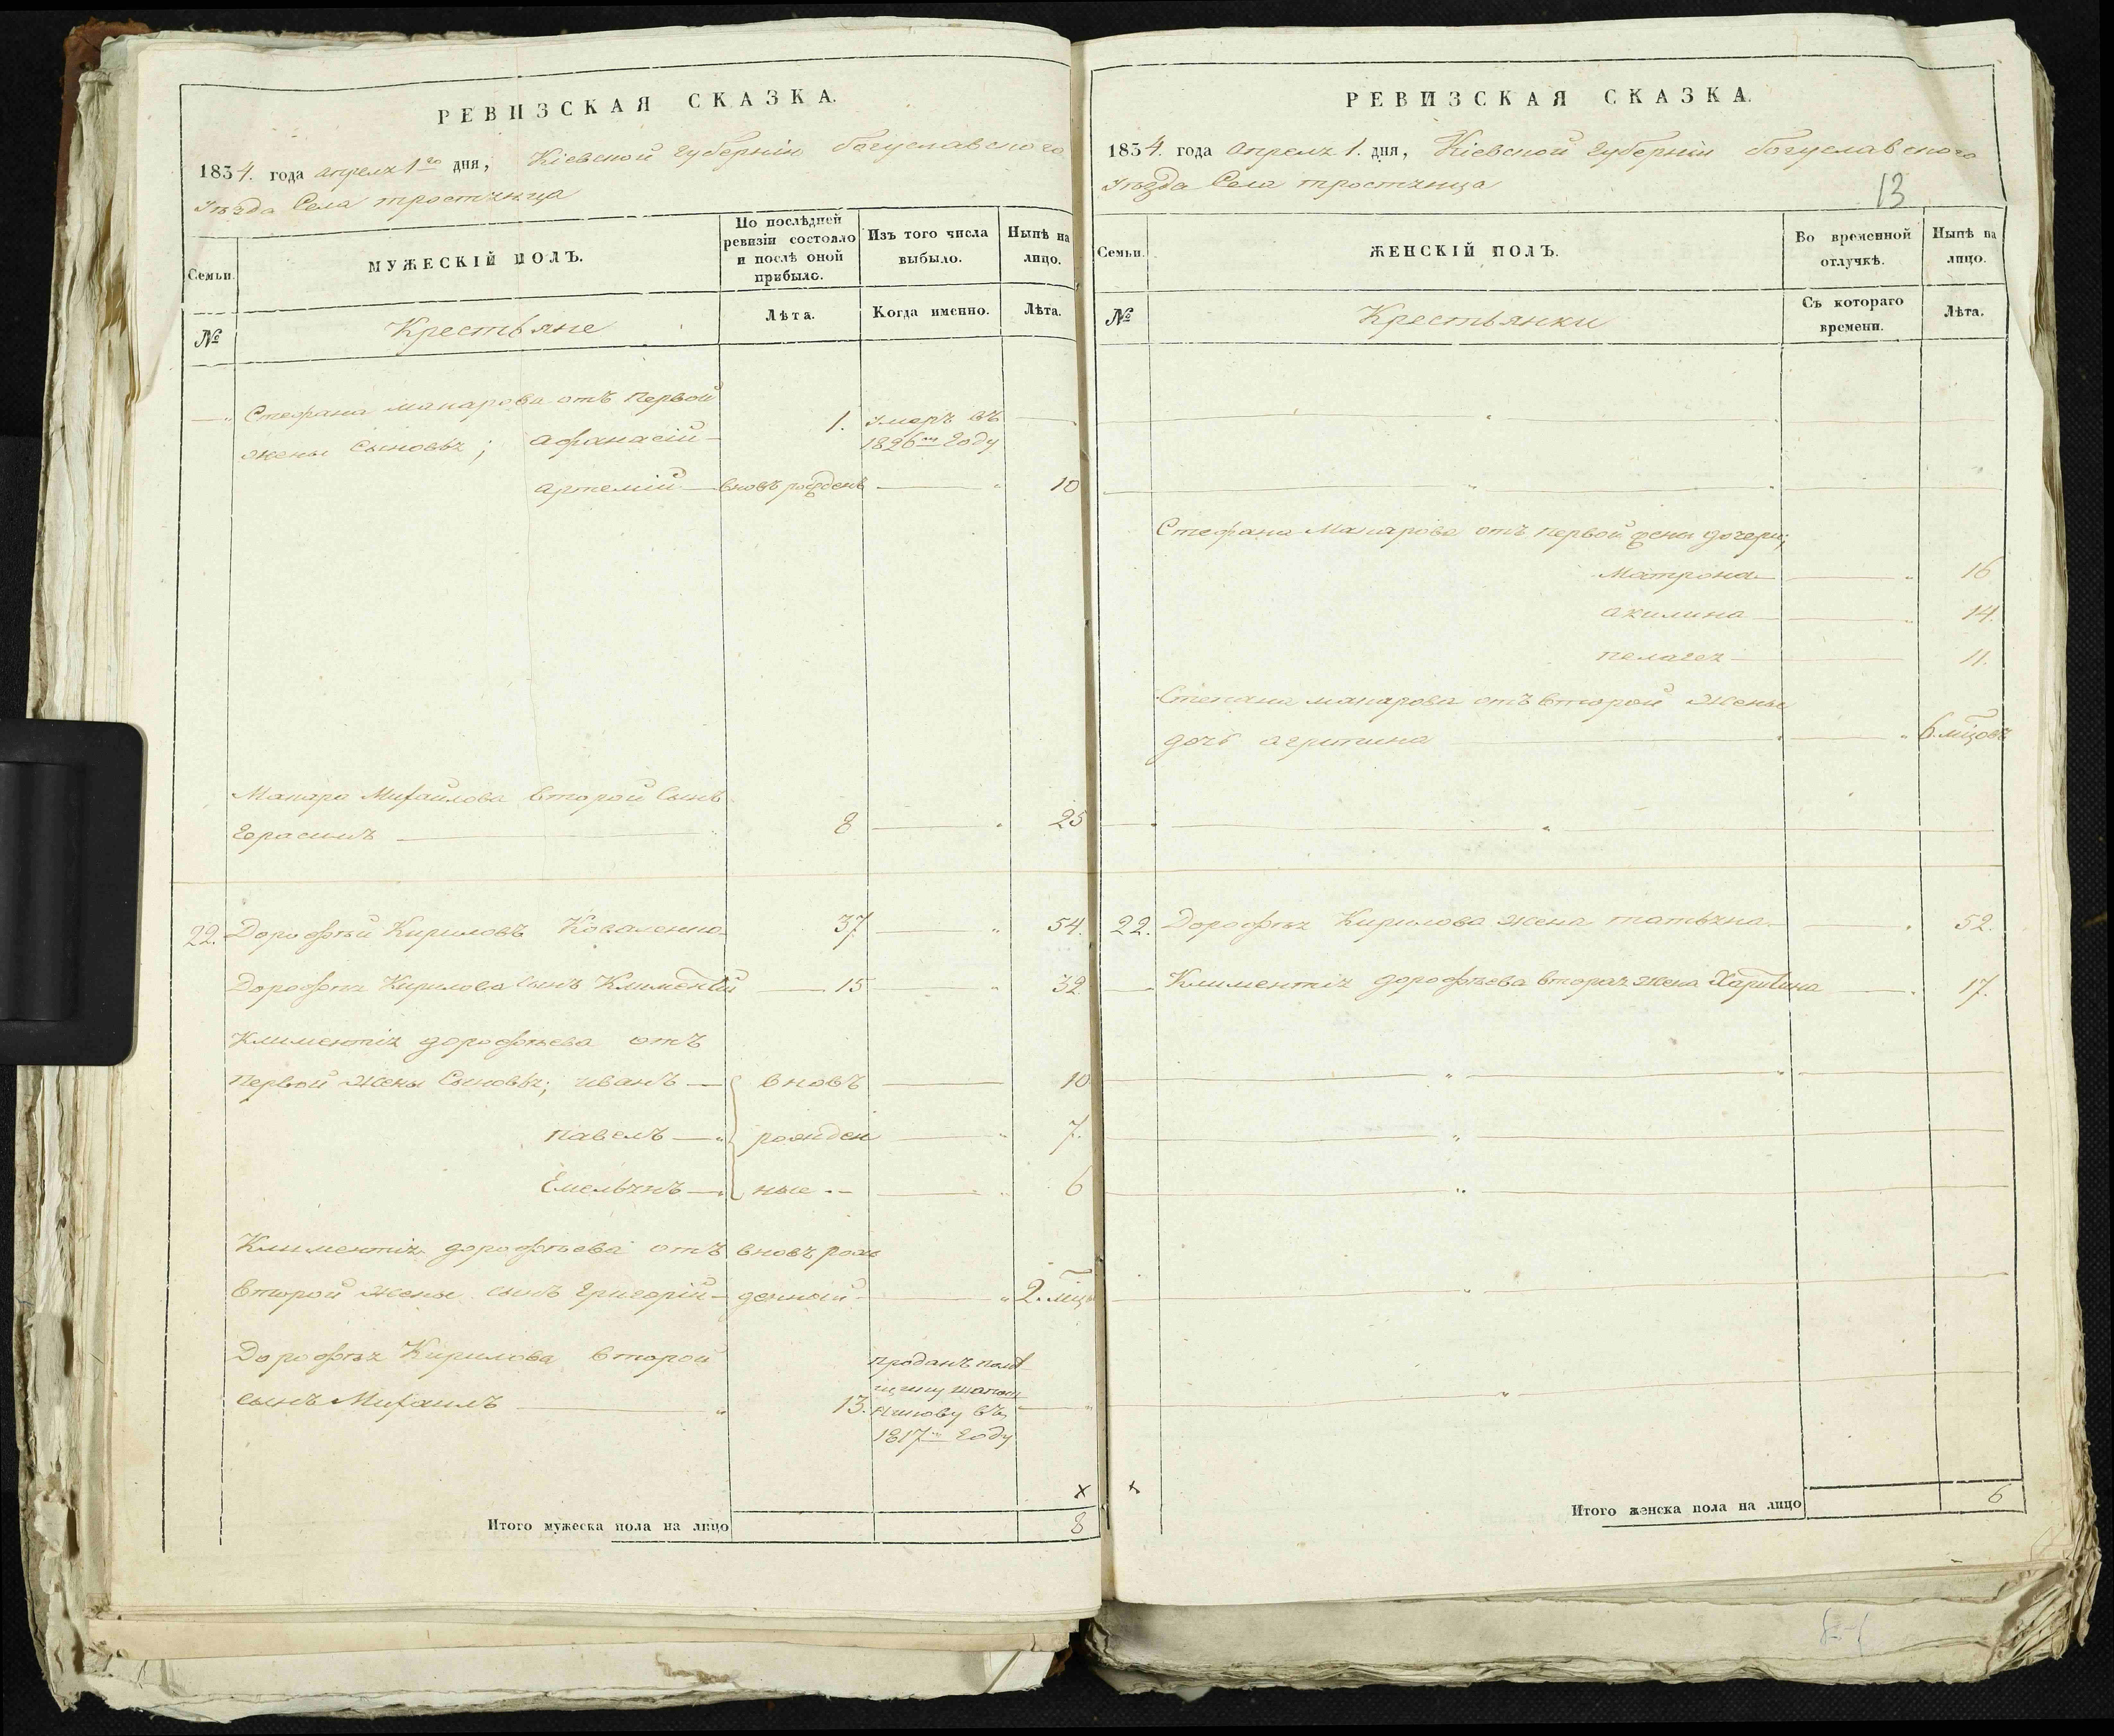 РЕВИЗСКАЯ СКАЗКА.
1834. года апреля 1го дня, Кіевской губерніи богуславского
уезда Села тростянца
Семьи.
МУЖЕСКІЙ ПОЛЪ.
По послѣдней
ревизіи состояло
и послѣ оной
прибыло.
Изъ того числа
выбыло.
Нынѣ на
лицо.
№
Крестьяне
Лѣта.
Когда именно.
Лѣта.
Стефана макарова отъ первой
жены сыновья; афанасій 1. умеръ въ
1826м году
артемій вновъ рожденъ 10
Макара Михайлова второй сынъ
Герасимъ 8 25
22. Дорофѣй Кириловъ Коваленко 37. 54.
Дорофѣя Кирилова сынъ Климентій 15 32
Климентія дорофѣева отъ
первой жены сыновья; иванъ вновъ 10
павелъ рожден 7.
Емельянъ ные 6
Климентія дорофѣева отъ вновъ рож
второй жены сынъ григорій денный 2. мцъ
Дорофѣя Кирилова второй
сынъ Михаилъ 13. проданъ помѣ
щику
въ
1817м году
×
Итого мужеска пола на лицо 8
РЕВИЗСКАЯ СКАЗКА.
1834. года апреля 1. дня, Кіевской губерніи богуславского
уезда Села тростянца
13
Семьи.
ЖЕНСКІЙ ПОЛЪ.
Во временной
отлучкѣ.
Нынѣ на
лицо.
№
Крестьянки
Съ котораго
времени.
Лѣта.
Стефана Макарова отъ первой жены дочери;
матрона 16
акилина 14.
пелагея 11.
Степана макарова отъ второй жены
дочь агрипина 6. мцовъ
22. Дорофѣя Кирилова жена татьяна 52.
Климентія дорофѣева вторая жена Харитина 17.
×
Итого женска пола на лицо 6